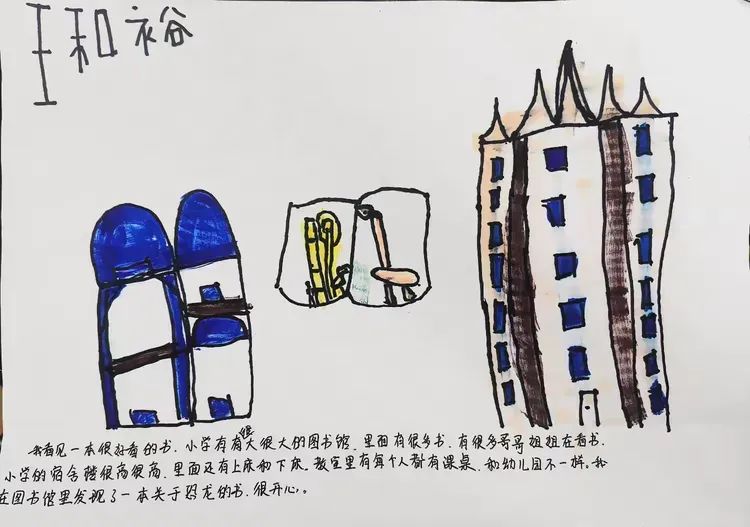 王和裕
我看见一本很好看的书.小学有有很大很大的图书馆.里面有很多书.有很多哥哥姐姐在看书.
小学的宿舍楼很高很高.里面还有上床和下床.教室里有每个人都有课桌.和幼儿园不一样.我
在图书馆里发现了一本关于恐龙的书.很开心。